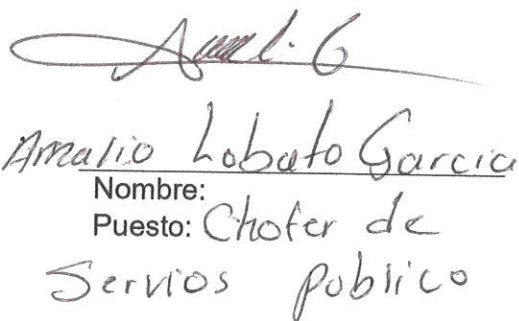 Amalio Lobato Garcia
Nombre:
Puesto: Chofer de
Servios publico